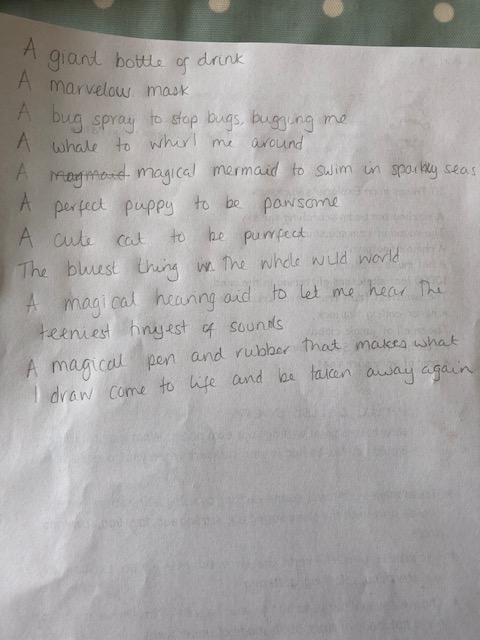 A giant bottle of drink
A marvelous mask
A bug spray to stop bugs, bugging me
A whale to whirl me around
A magmaid magical mermaid to swim in sparkly seas
A perfect puppy to be pawsome
A cute cat to be purrfect
The bluest thing in the whole wild world
A magical hearing aid to let me hear the
teeniest tinyest of sounds
A magical pen and rubber that makes what
I draw come to life and be taken away again